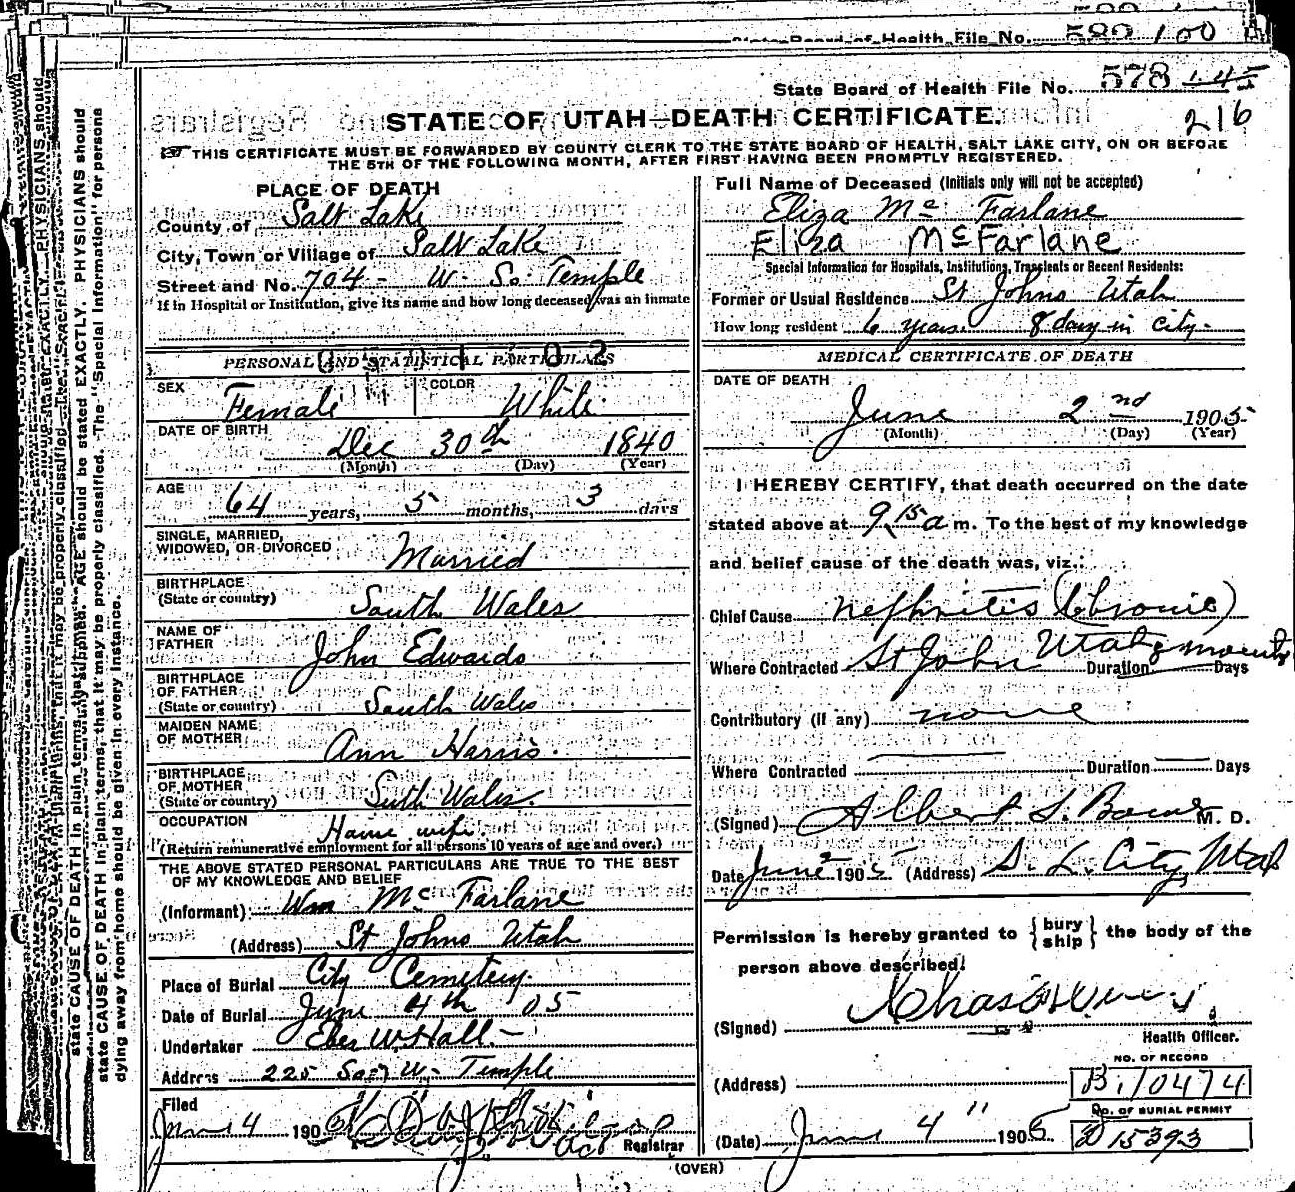 State Board of Health File No. 580 100
State Board of Health File No. 578 145
216
STATE OF UTAH—DEATH CERTIFICATE.
THIS CERTIFICATE MUST BE FORWARDED BY COUNTY CLERK TO THE STATE BOARD OF HEALTH, SALT LAKE CITY, ON OR BEFORE
THE 5TH OF THE FOLLOWING MONTH, AFTER FIRST HAVING BEEN PROMPTLY REGISTERED.
PLACE OF DEATH
County of Salt Lake
City, Town or Village of Salt Lake
Street and No. 704 - W. So. Temple
If in Hospital or Institution, give its name and how long deceased was an inmate
PERSONAL AND STATISTICAL PARTICULARS
SEX Female COLOR White
DATE OF BIRTH
Dec 30th 1840
(Month) (Day) (Year)
AGE
64 years, 5 months, 3 days
SINGLE, MARRIED,
WIDOWED, OR DIVORCED Married
BIRTHPLACE
(State or country) South Wales
NAME OF
FATHER John Edwards
BIRTHPLACE
OF FATHER
(State or country) South Wales
MAIDEN NAME
OF MOTHER Ann Harris.
BIRTHPLACE
OF MOTHER
(State or country) Suth Wales.
OCCUPATION
Hame wife
(Return remunerative employment for all persons 10 years of age and over.)
THE ABOVE STATED PERSONAL PARTICULARS ARE TRUE TO THE BEST
OF MY KNOWLEDGE AND BELIEF
(Informant) Wm McFarlane
(Address) St Johns Utah
Place of Burial City Cemetery.
Date of Burial June 4th 05
Undertaker Eber W. Hall.
Address 225 So W. Temple
Filed
June 4 1905
Registrar
Full Name of Deceased (Initials only will not be accepted)
Eliza Mc Farlane
Eliza McFarlane
Special Information for Hospitals, Institutions, Transients or Recent Residents:
Former or Usual Residence St Johns Utah
How long resident 6 years. 8 days in City.
MEDICAL CERTIFICATE OF DEATH
DATE OF DEATH
June 2nd 1905
(Month) (Day) (Year)
I HEREBY CERTIFY, that death occurred on the date
stated above at 9 15 a m. To the best of my knowledge
and belief cause of the death was, viz.:
Chief Cause Nephritis (Chronic)
Where Contracted St John Utah Duration months Days
Contributory (if any) none
Where Contracted Duration Days
(Signed) Albert S. M. D.
Date June 2 1905 (Address) S. L. City, Utah
Permission is hereby granted to { bury ship } the body of the
person above described.
(Signed) Chas
Health Officer.
NO. OF RECORD
(Address) B. 10474
NO. OF BURIAL PERMIT
(Date) June 4" 1905 D 15393
(OVER)
state CAUSE OF DEATH in plain terms, AGE should be stated EXACTLY. PHYSICIANS should
state CAUSE OF DEATH in plain terms, that it may be properly classified. The "Special Information" for persons
dying away from home should be given in every instance.